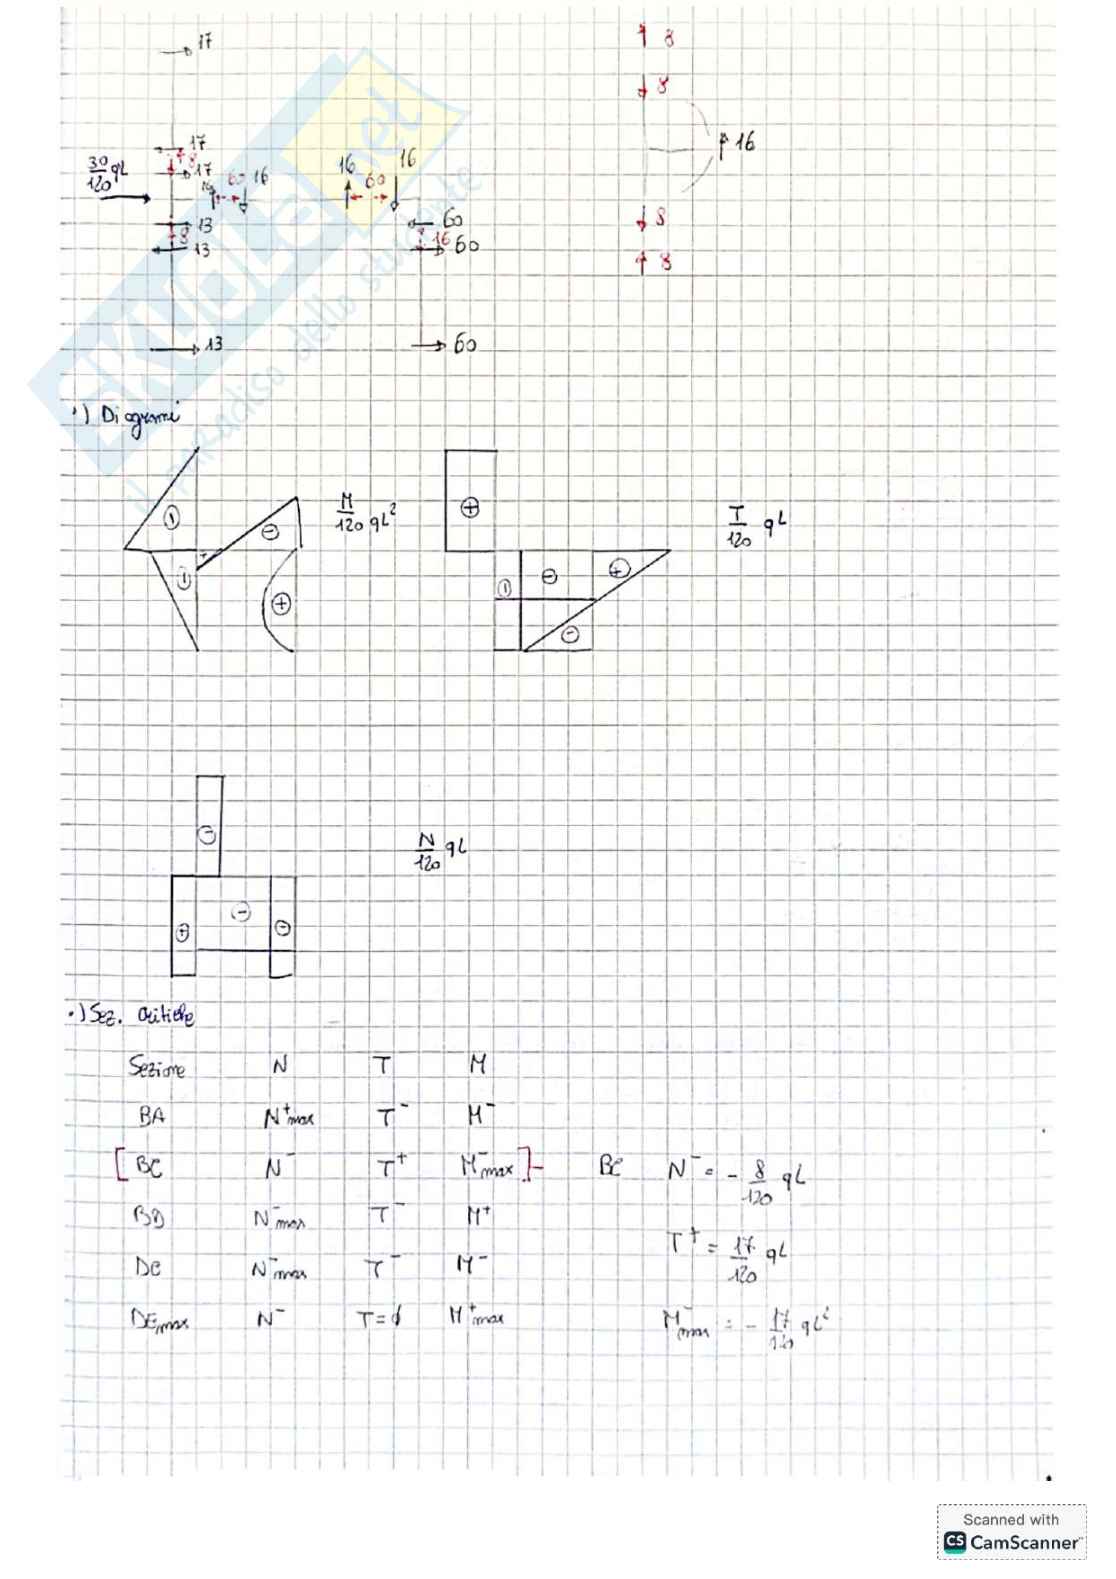 17
↑ 8
↓ 8
17
8
↑ 16
30/120 qL
17
16
60 16
16
60
16
13
60
↓ 8
8
16
13
60
↑ 8
13
60
SKUOLA.net
il paradiso dello studente
•) Diagrammi
M/120 qL²
T/120 qL
⊖
⊖
⊕
+
⊖
⊕
⊖
⊖
⊕
⊖
⊖
N/120 qL
⊖
⊕
⊖
•) Sez. critiche
Sezione N T M
BA N⁺max T⁻ M⁻
[BC N⁻ T⁺ M⁻max]- BC N⁻ = - 8/120 qL
BD N⁻max T⁻ M⁺
T⁺ = 17/120 qL
DC N⁻max T⁻ M⁻
DE,max N⁻ T=∅ M⁺max
M⁻max = - 17/120 qL²
Scanned with
CS CamScanner™